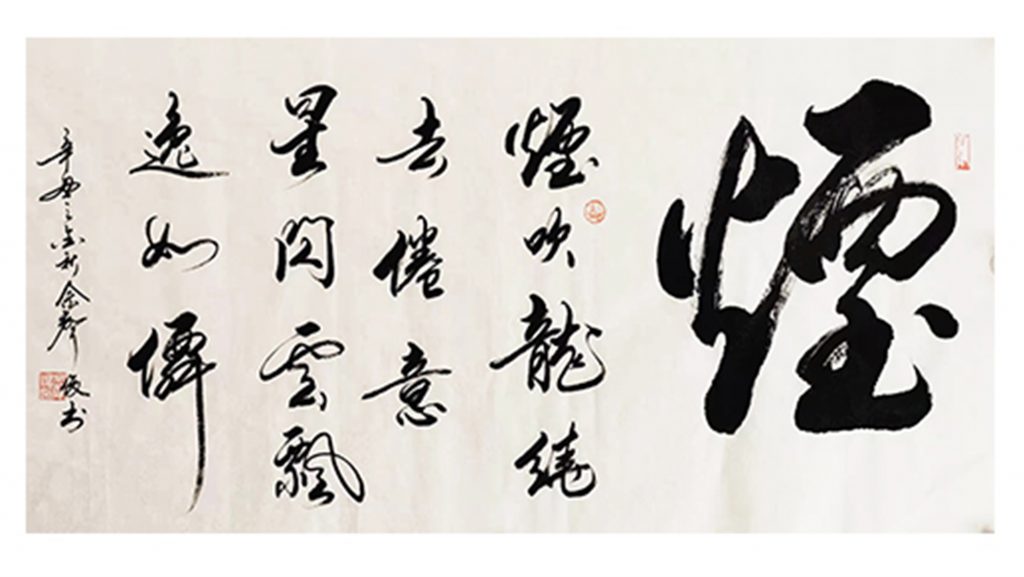 煙
煙吹龍繞
去倦意
星閃雲飄
逸如僊
辛丑之金秋余
俊书